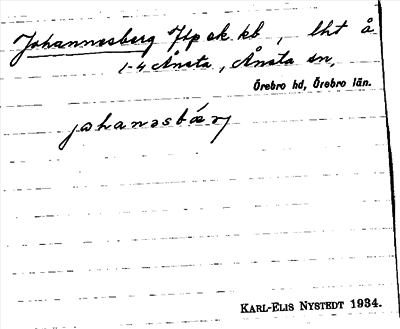 Johannesberg Hp ek. kb, lht å
1-4 Ånsta, Ånsta sn,
Örebro hd, Örebro län.
johanəsbærj
KARL-ELIS NYSTEDT 1934.